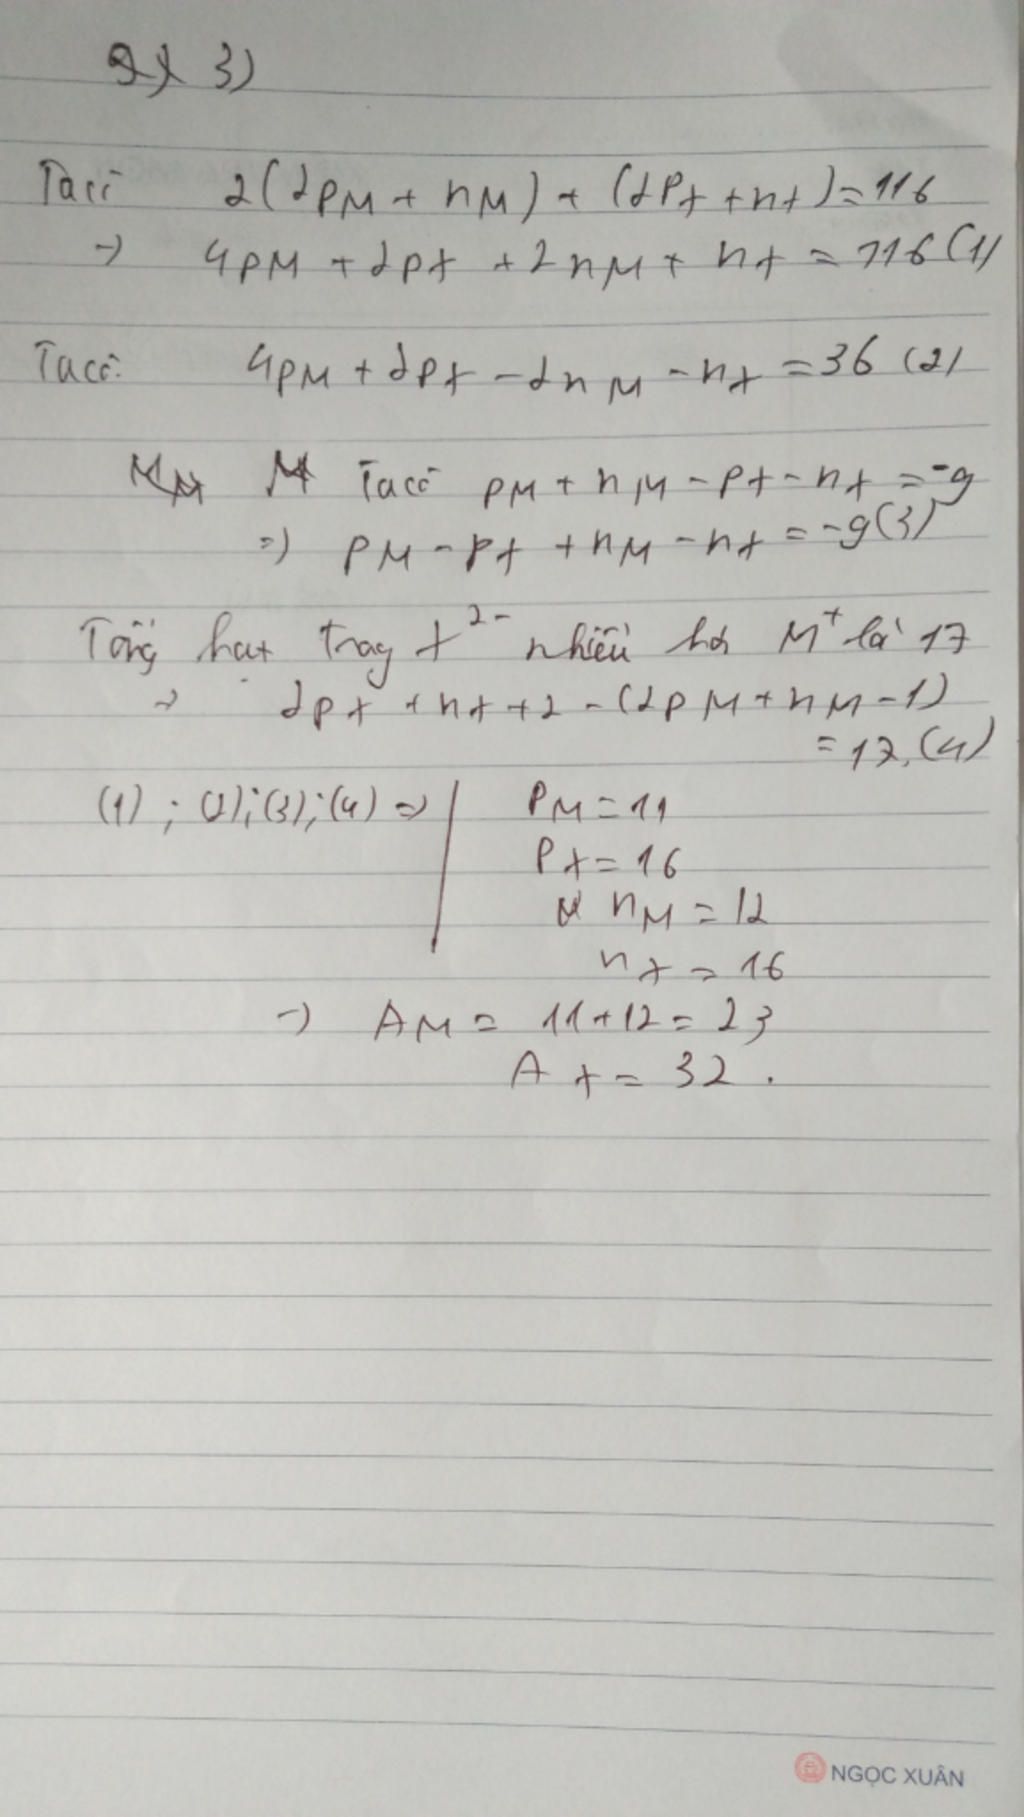 3)
Ta có 2(2pM + nM) + (2pX + nX) = 116
-> 4pM + 2pX + 2nM + nX = 116 (1)
Ta có: 4pM + 2pX - 2nM - nX = 36 (2)
Ta có pM + nM - pX - nX = -9
=) pM - pX + nM - nX = -9 (3)
Tổng hạt trong X²⁻ nhiều hơn M⁺ là 17
-> 2pX + nX + 2 - (2pM + nM - 1)
= 17. (4)
(1) ; (2) ; (3) ; (4) => pM = 11
pX = 16
nM = 12
nX = 16
-> AM = 11 + 12 = 23
AX = 32.
NGỌC XUÂN